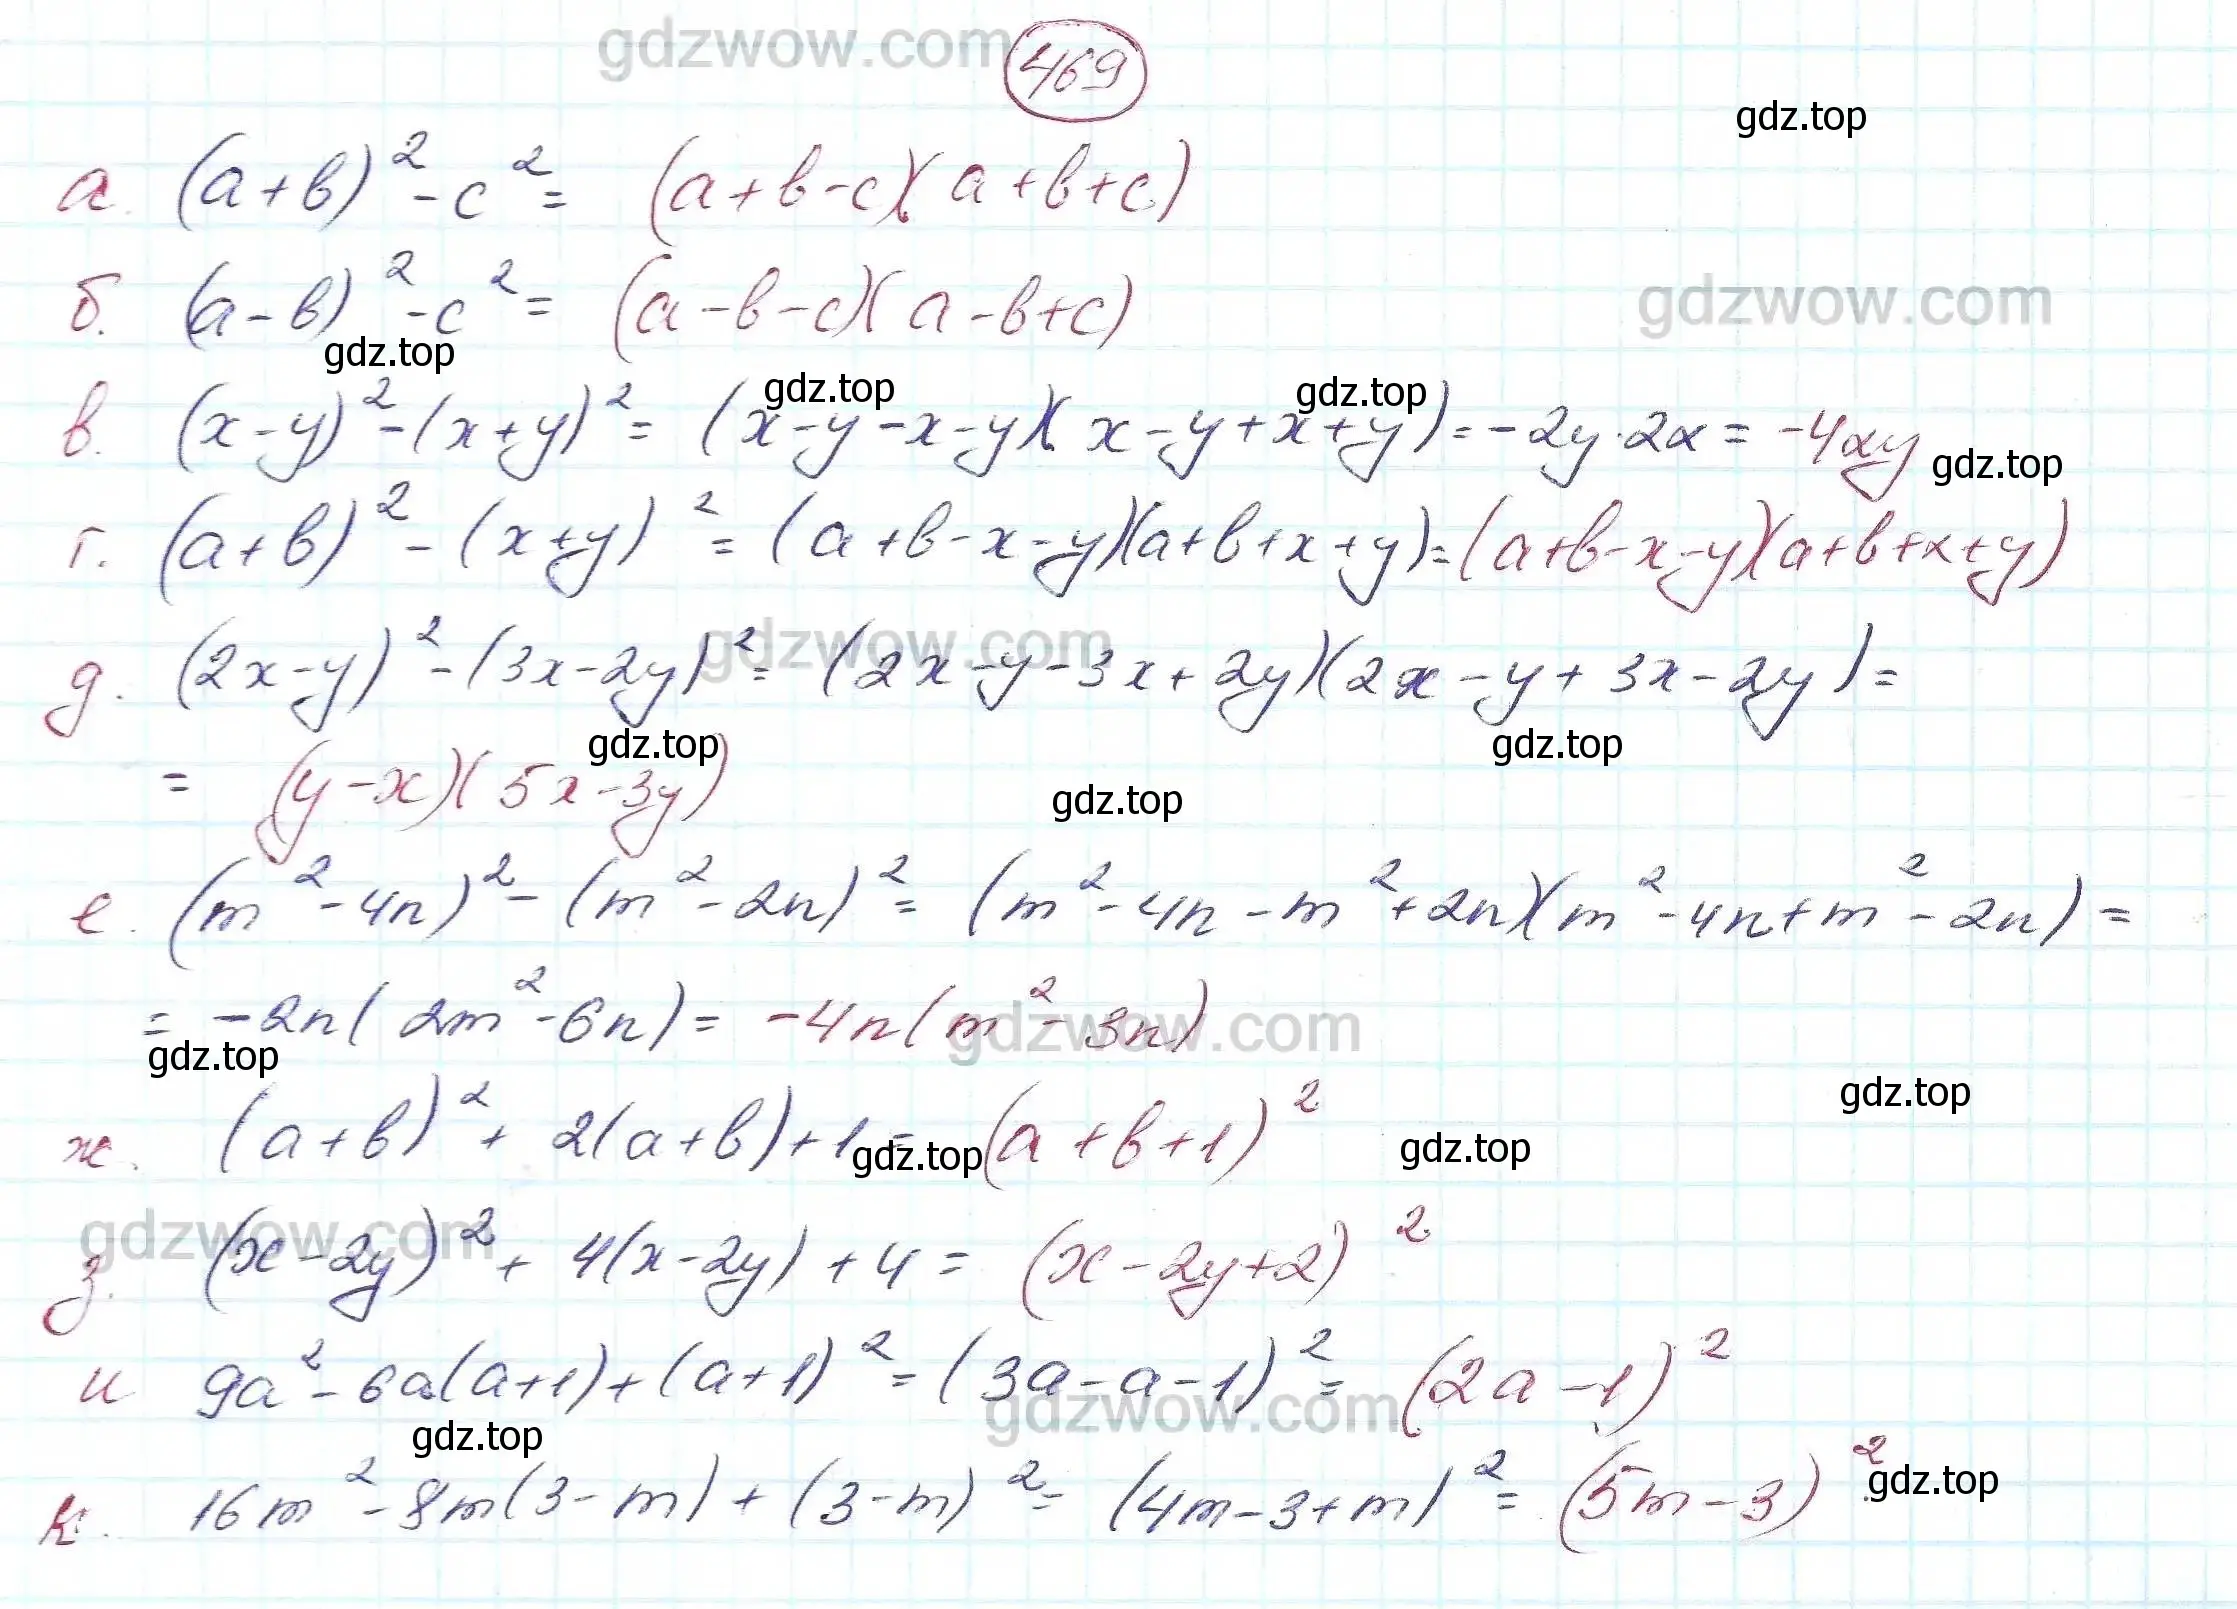 gdzwow.com
469
gdz.top
а. (a+b)²-c²= (a+b-c)(a+b+c)
б. (a-b)²-c²= (a-b-c)(a-b+c)
gdzwow.com
gdz.top
gdz.top
gdz.top
в. (x-y)²-(x+y)²= (x-y-x-y)(x-y+x+y)=-2y·2x= -4xy
gdz.top
г. (a+b)²-(x+y)²= (a+b-x-y)(a+b+x+y)=(a+b-x-y)(a+b+x+y)
gdzwow.com
д. (2x-y)²-(3x-2y)²= (2x-y-3x+2y)(2x-y+3x-2y)=
gdz.top
gdz.top
= (y-x)(5x-3y)
gdz.top
е. (m²-4n)²-(m²-2n)²= (m²-4n-m²+2n)(m²-4n+m²-2n)=
= -2n(2m²-6n)= -4n(m²-3n)
gdzwow.com
gdz.top
gdz.top
ж. (a+b)²+2(a+b)+1= (a+b+1)²
gdz.top
gdz.top
gdzwow.com
з. (x-2y)²+4(x-2y)+4= (x-2y+2)²
и 9a²-6a(a+1)+(a+1)²=(3a-a-1)²= (2a-1)²
gdzwow.com
gdz.top
к. 16m²-8m(3-m)+(3-m)²= (4m-3+m)²= (5m-3)²
gdz.top